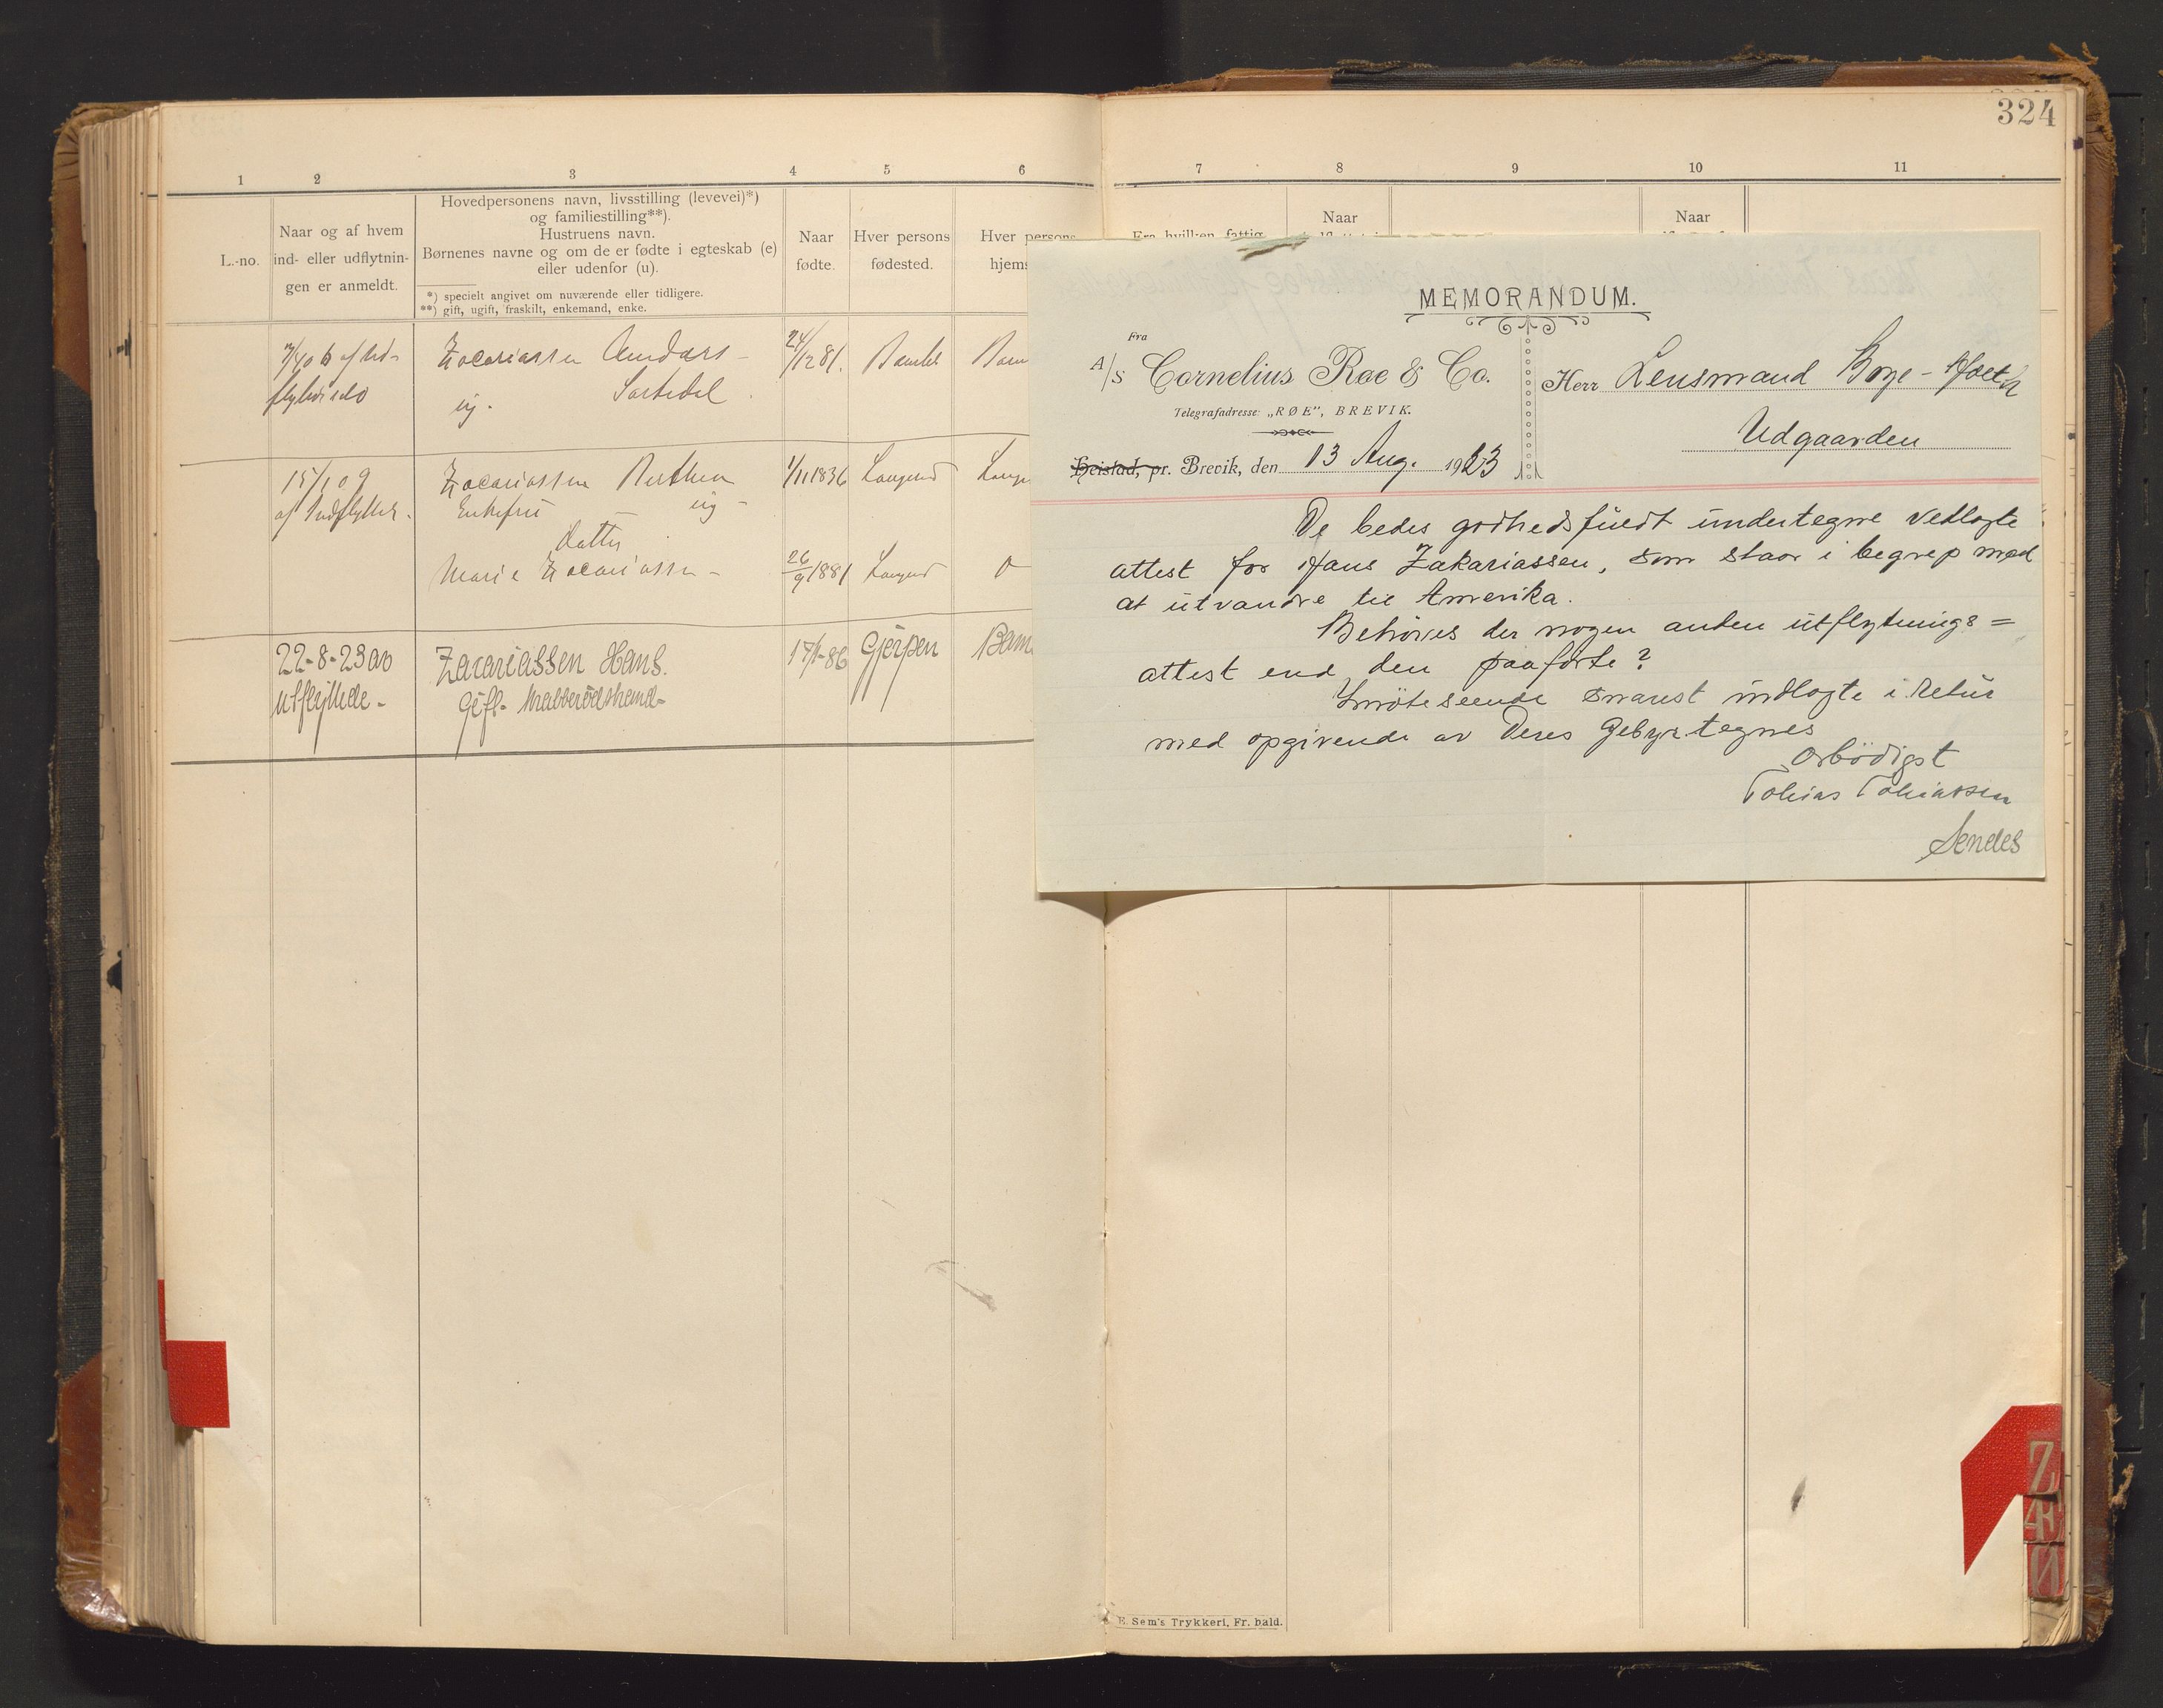 324
1 2 3 4 5 6
7 8 9 10 11
L.-no.
Naar og af hvem
ind- eller udflytnin-
gen er anmeldt.
Hovedpersonens navn, livsstilling (levevei)*)
og familiestilling**).
Hustruens navn.
Børnenes navne og om de er fødte i egteskab (e)
eller udenfor (u).
*) specielt angivet om nuværende eller tidligere.
**) gift, ugift, fraskilt, enkemand, enke.
Naar
fødte.
Hver persons
fødested.
Hver persons
hjems
Fra hvilken fattig
Naar
Naar
Zacariassen
24/12 81. Bamble Bam
ug.
15/1 09 Zacariassen 1/11 1836 Langesund Lange
af Indflytter. Enkefru ug -
Datter
Marie Zacariassen - 26/9 1881 Langesund
22-8-23 av Zacariassen Hans. 17/1-86 Gjerpen Bam
Utflyttede - Gift.
MEMORANDUM.
Fra
A/S Cornelius Røe & Co.
Telegrafadresse: „RØE", BREVIK.
Heistad, pr. Brevik, den 13 Aug. 1923
Herr Lensmand Boye-Hoeth
Udgaarden
De bedes godhedsfuldt undertegne vedlagte
attest for Hans Zakariassen, som staar i begrep med
at utvandre til Amerika.
Behöves der nogen anden utflytnings=
attest end den paaførte?
Imöteseende snarest indlagte i retur
med opgivende av Deres Gebyr tegnes
Ærbödigst
Tobias Tobiassen
Sendes
E. Sem's Trykkeri, Fr. hald.
Z
Æ
Ø